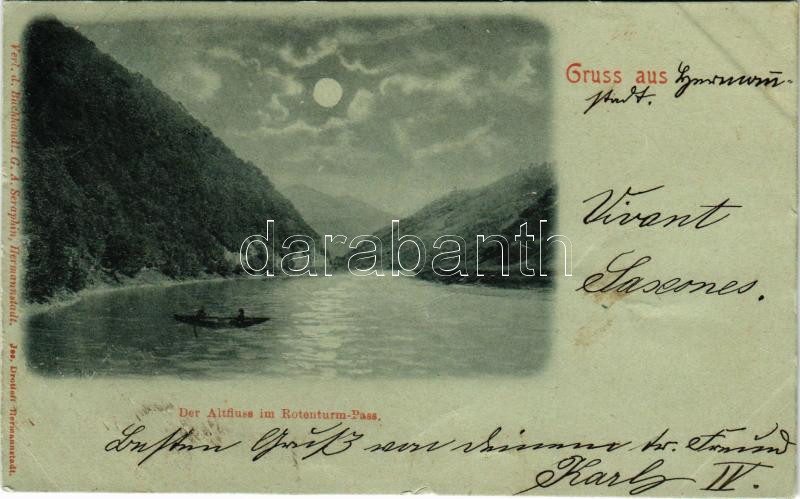 Gruss aus Hermann-
stadt.
Vivant
Saxones.
darabanth
Der Altfluss im Rotenturm-Pass.
Besten Gruß von deinem tr. Freund
Karl IV.
Verl. d. Buchhandl. G. A. Seraphin, Hermannstadt.
Jos. Drotleff Hermannstadt.